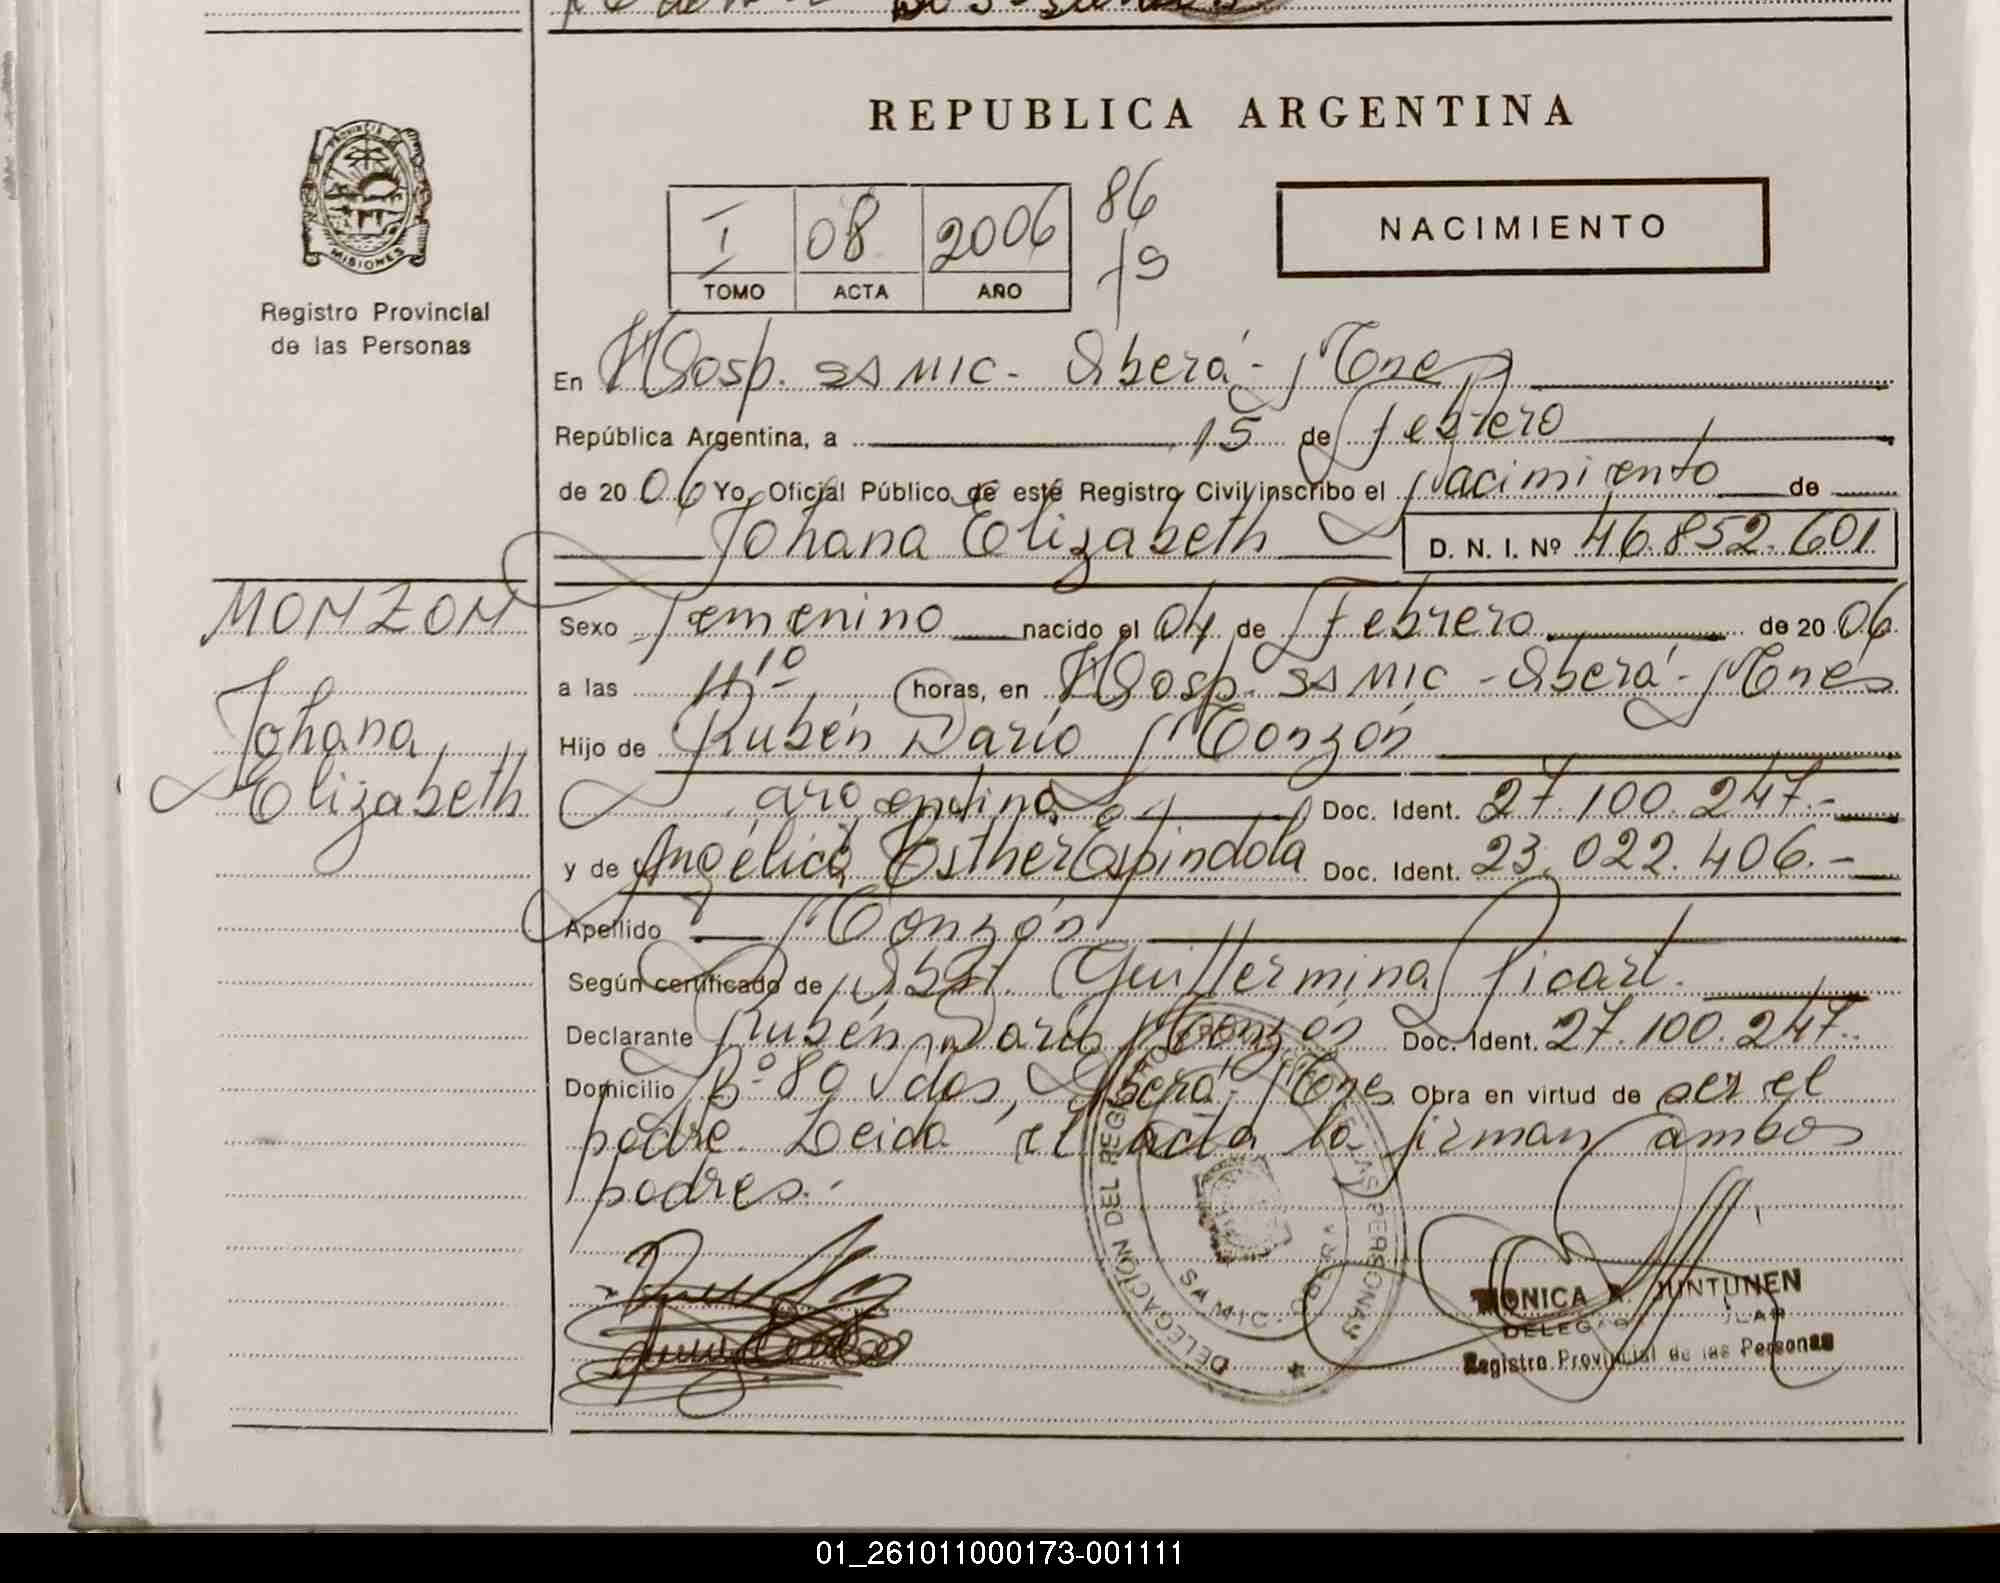 REPUBLICA ARGENTINA
PROVINCIA DE
MISIONES
Registro Provincial
de las Personas
I 08 2006 86
TOMO ACTA AÑO fs
NACIMIENTO
En Hosp. SAMIC - Oberá - Mnes
República Argentina, a 15 de febrero
de 2006 Yo, Oficial Público de este Registro Civil inscribo el Nacimiento de
Johana Elizabeth D. N. I. Nº 46.852.601
MONZON
Johana
Elizabeth
Sexo Femenino nacido el 04 de Febrero de 2006
a las 11'10 horas, en Hosp. SAMIC - Oberá - Mnes
Hijo de Rubén Darío Monzón
argentino Doc. Ident. 27.100.247.-
y de Angélica Esther Espindola Doc. Ident. 23.022.406.-
Apellido Monzón
Según certificado de Obst. Guillermina Picart.
Declarante Rubén Darío Monzón Doc. Ident. 27.100.247.-
Domicilio Bº 80 Vdas, Oberá - Mnes Obra en virtud de ser el
padre. Leida el acta la firman ambos
padres.-
DELEGACION DEL REGISTRO PERSONAS
SAMIC OBERA
MONICA JUNTUNEN
Registro Provincial de las Personas
01_261011000173-001111